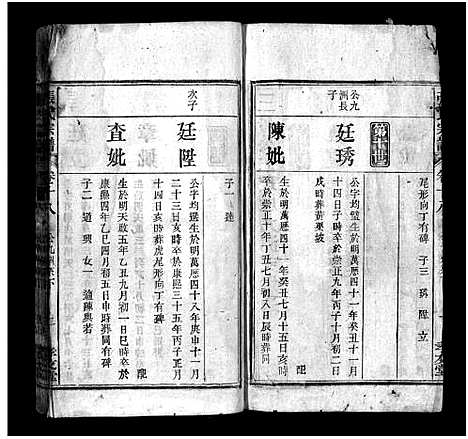 尾形向丁有碑 子三 昇 陞 立
公九洲長子
廷琇
公字均璧生於明萬曆四十一年癸丑十一月
十四日子時卒於崇正九年丙子十月初二日
戌時葬黃栗坡
陳妣
生於明萬曆四十一年癸丑七月十五日亥時
卒於崇正 年 丑七月初八日辰時葬同
子一 達
次子
廷陞
公字均選生於明萬曆四十八年庚申十一月
二十三日亥時卒於康熙三十五年丙子六月
十四日亥時葬虎尾形向丁有碑
查妣
生於明天啟五年乙丑九月初一日巳時卒於
康熙四年乙巳四月初六日申時葬同有碑
子二 道 興 女一 適陳與若